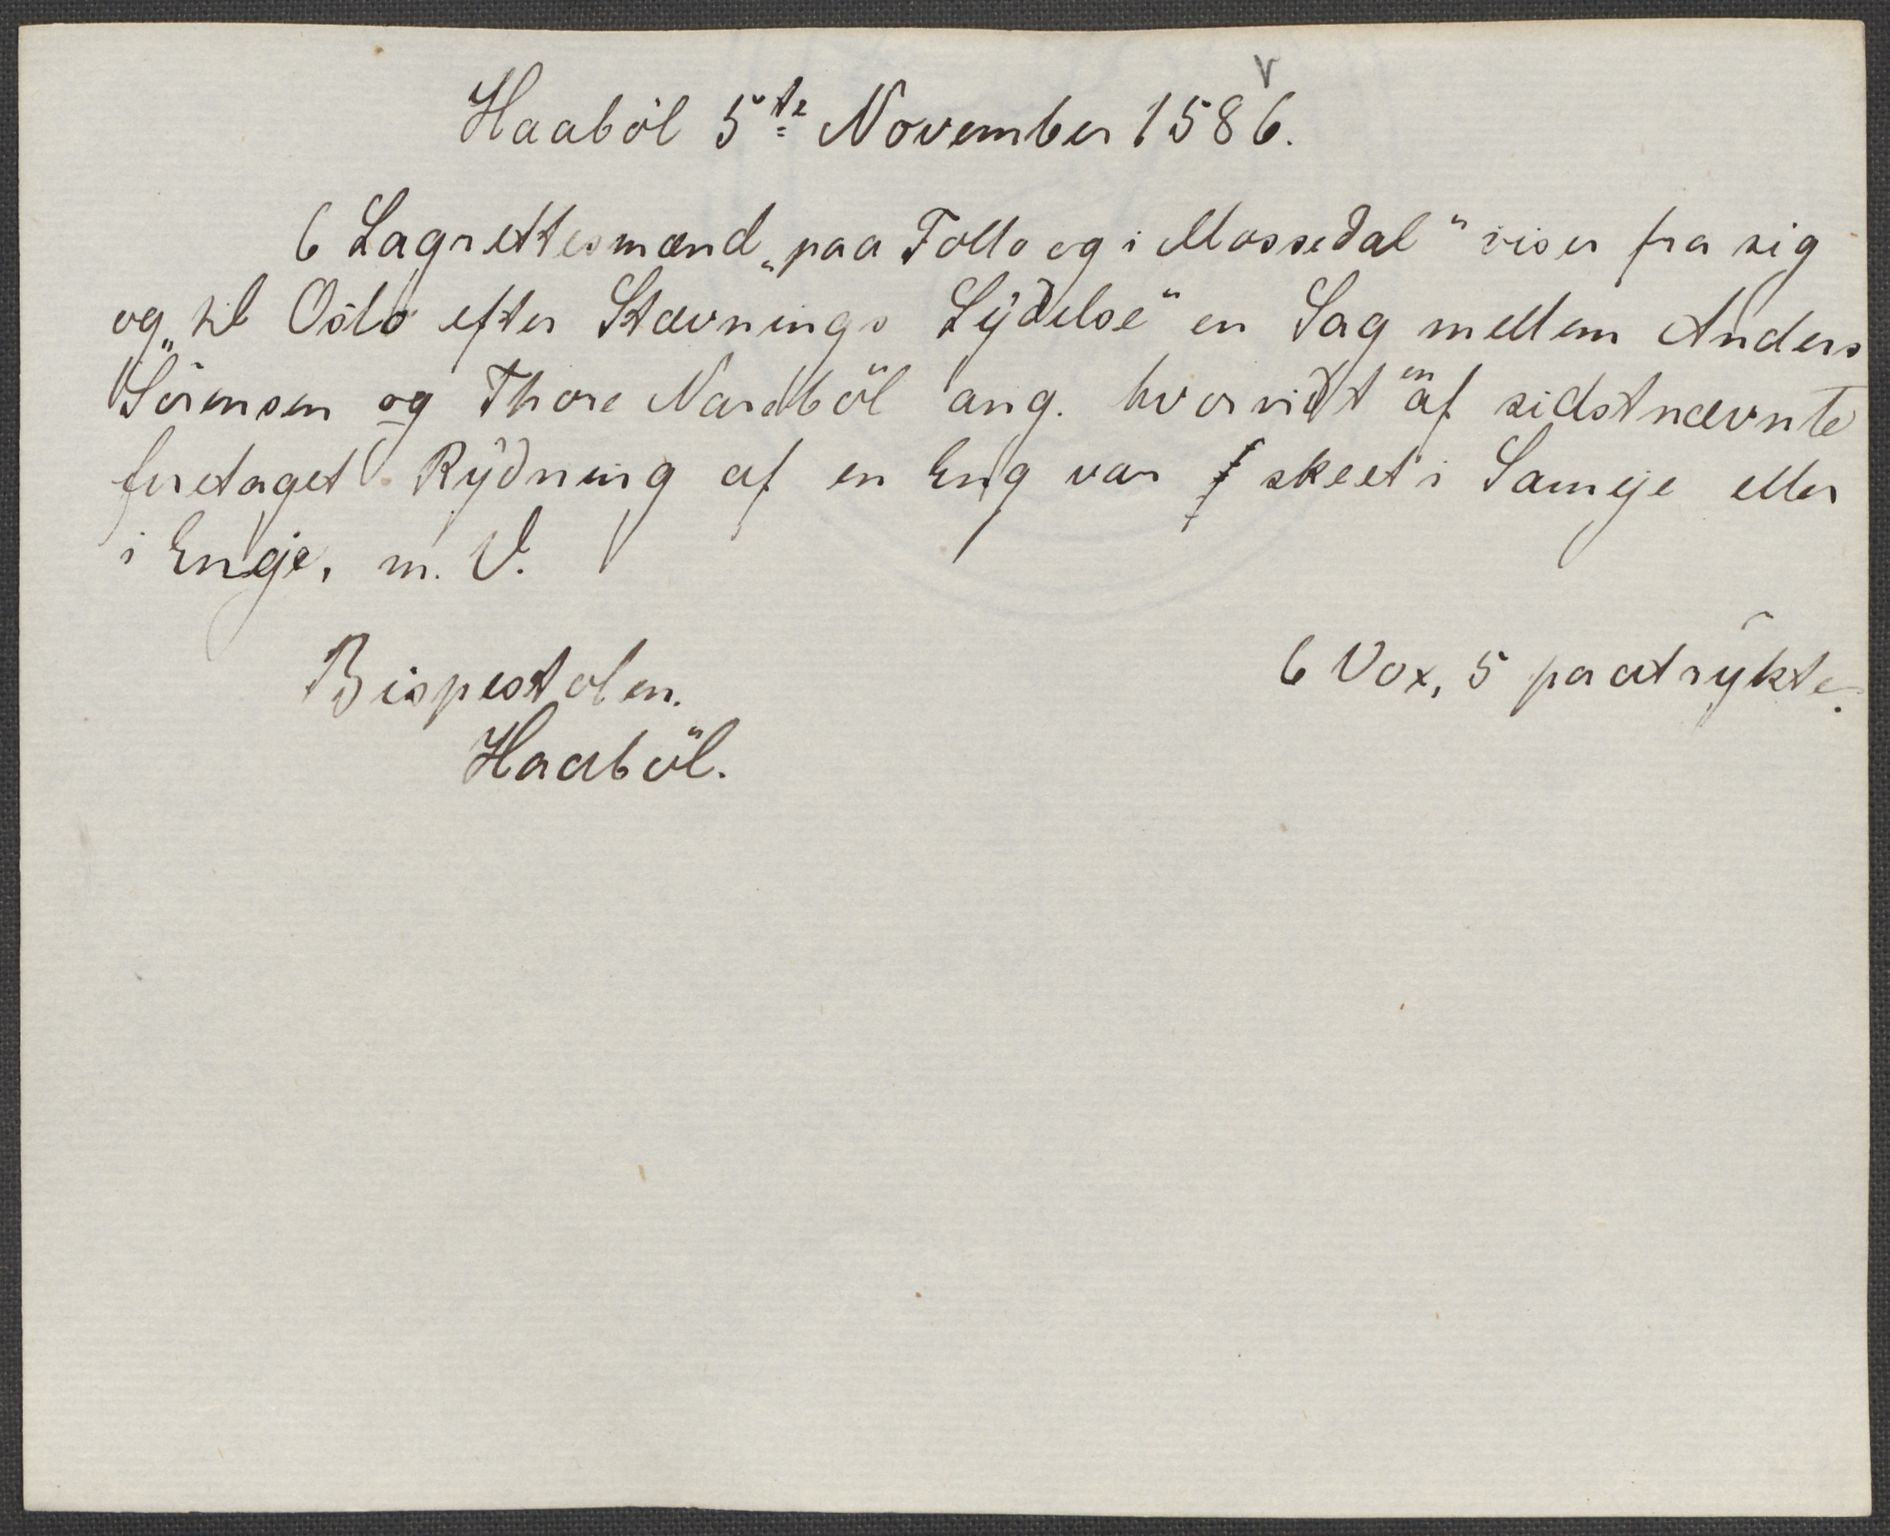 Haaböl 5te November 1586.
6 Lagrettesmænd „paa Follo og i Mossedal“ viser fra sig
og „til Oslo efter Stævnings Lÿdelse“ en Sag mellem Anders
Sörensen og Thore Nardböl ang. hvorvidt en af sidstnævnte
foretaget Rÿdning af en Eng var skeet i Sameje eller
i Eneje, m. V.
Bispestolen.
6 Vox, 5 paatrÿkte.
Haaböl.